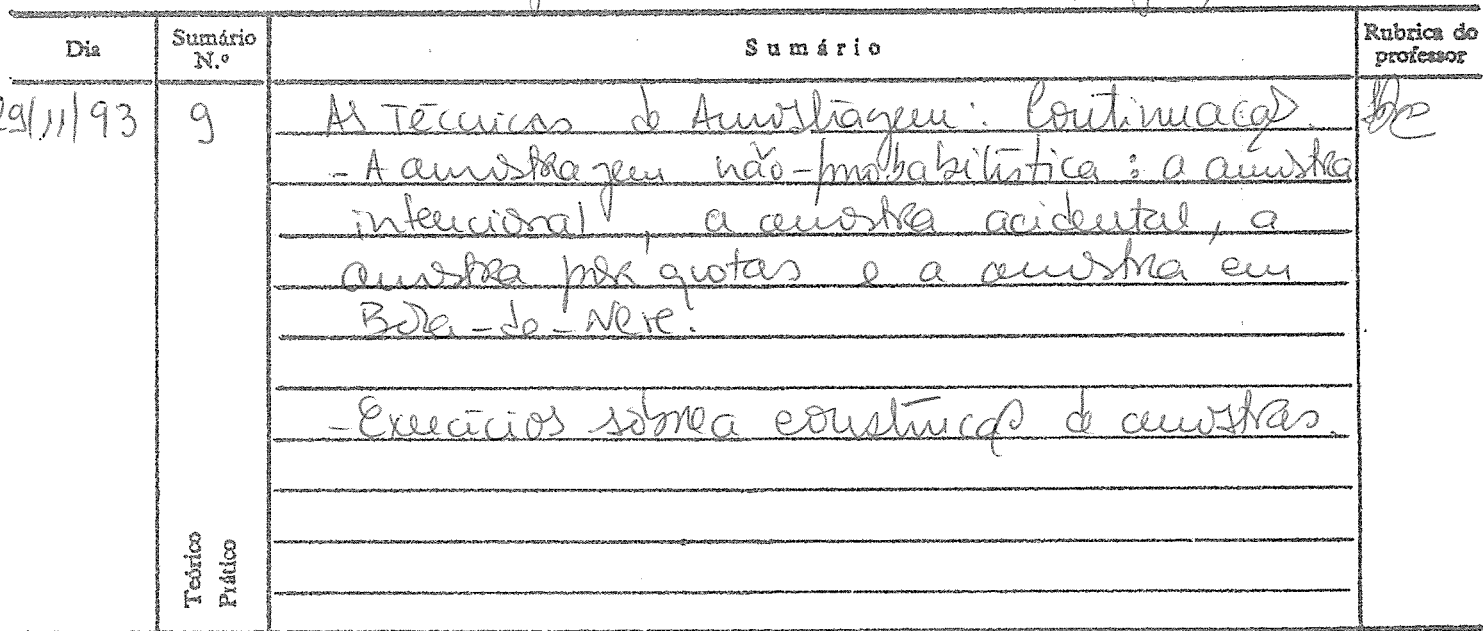 Dia Sumário N.º Sumário Rubrica do professor
29/11/93 9 As Técnicas de Amostragem: Continuação.
- A amostragem não-probabilística: a amostra
intencional, a amostra acidental, a
amostra por quotas e a amostra em
Bola-de-Neve.
- Exercícios sobre a construção de amostras.
Teórico
Prático